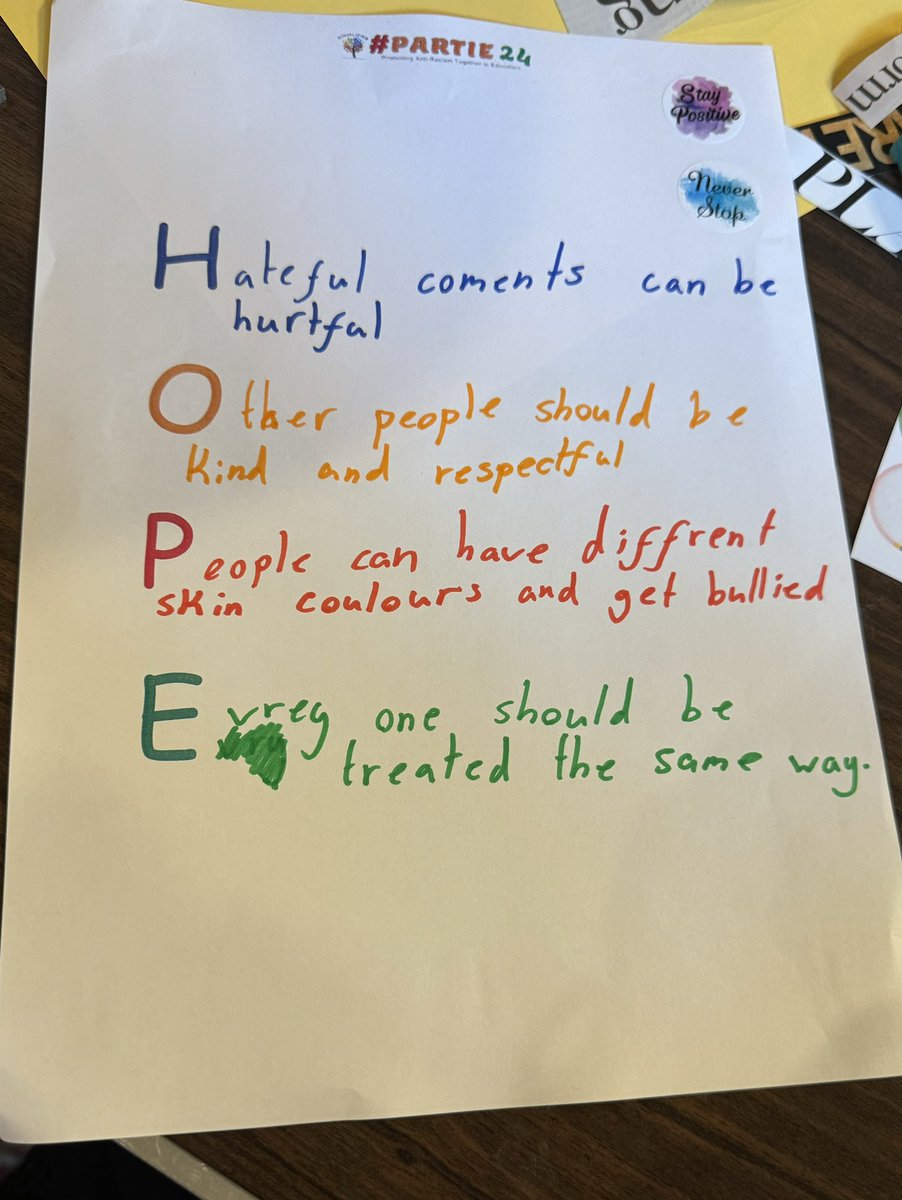 #PARTIE 24
Promoting Anti-Racism Together in Education
Stay
Positive
Never
Stop
Hateful coments can be
hurtful
Other people should be
kind and respectful
People can have diffrent
skin coulours and get bullied
Evrey one should be
treated the same way.
orm